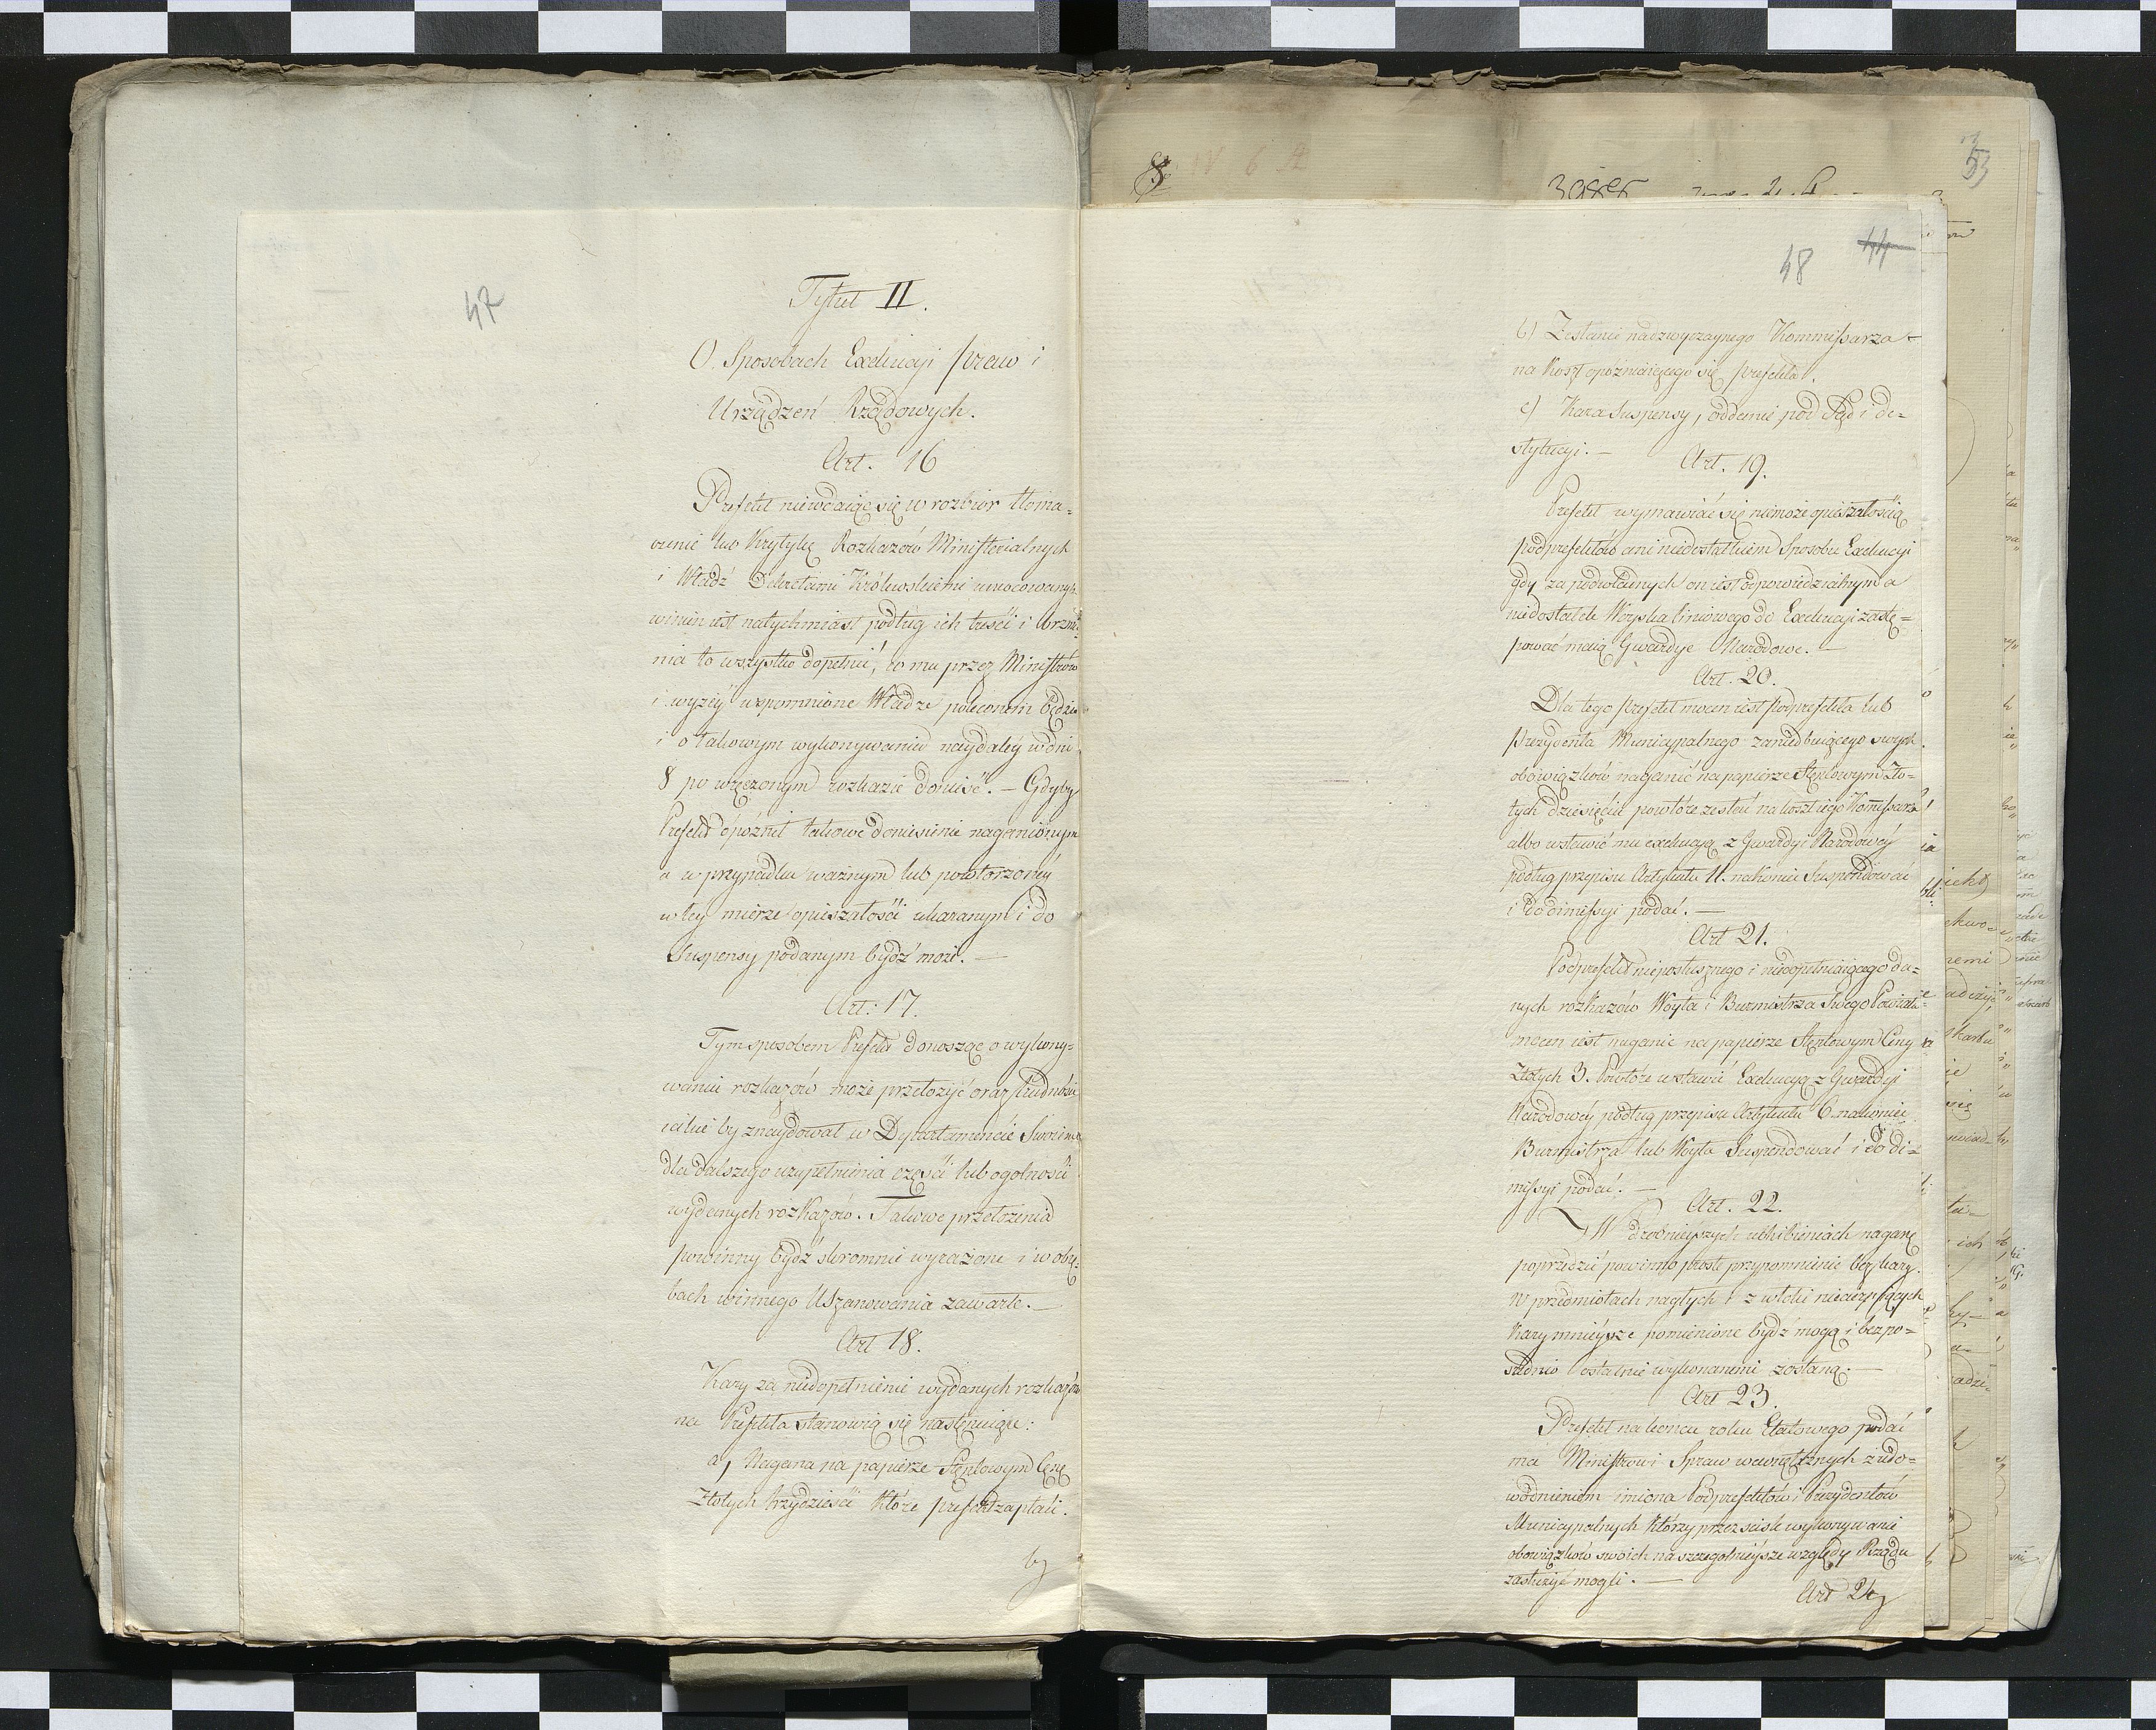 47
Tytuł II.
O Sposobach Exekucyi praw i
Urządzeń Rządowych.
Art. 16
Prefekt niewdaiąc się w rozbiór tłoma=
czenie lub Krytykę Rozkazów Ministerialnych
i Władz Dekretami Królewskiemi umocowanych
winien iest natychmiast podług ich treści i brzmi=
nia to wszystko dopełnić, co mu przez Ministrów
i wyżéy wspomnione Władze poleconem będzie
i o takowym wykonywaniu naydaléy w dni
8 po wręczonym rozkazie donieść. — Gdyby
Prefekt opóźnił takowe doniesienie naganionym
a w przypadku ważnym lub powtorzonéy
w tey mierze opieszałości ukaranym i do
Suspensy podanym bydź może. —
Art: 17.
Tym sposobem Prefekt donosząc o wykony=
waniu rozkazów może przełożyć oraz trudności
iakie by znaydował w Departamencie Swoim
dla dalszego uzupełnienia części lub ogolności
wydanych rozkazów. Takowe przełożenia
powinny bydź skromnie wyrażone i w obrę=
bach winnego Uszanowania zawarte. —
Art 18.
Kary za niedopełnienie wydanych rozkazów
na Prefekta stanowią się następuiące:
a, Nagana na papierze Stęplowym Cenę
Złotych trzydzieści które prefekt zapłaci.
b,
8
53
48 44
b) Zesłanie nadzwyczaynego Kommissarza
na Koszt opóźniaiącego się prefekta.
c) Kara Suspensy, oddanie pod Sąd i de=
stytucyi. —
Art. 19.
Prefekt wymawiać się niemoże opieszałością
podprefektów ani niedostatkiem Sposobu Exekucyi
gdy za podwładnych on iest odpowiedzialnym a
niedostatek Woyska liniowego do Exekucyi zastę=
pować maią Gwardye Narodowe. —
Art. 20.
Dla tego prefekt mocen iest podprefekta lub
prezydenta Municypalnego zaniedbuiącego swych
obowiązków naganić na papierze Stęplowym Zło=
tych dziesięciu powtóre zesłać na koszt iego Komissarza
albo wstawić mu exekucyą z Gwardyi Narodowéy
podług przepisu Artykułu 11. nakoniec Suspendować
i do dimissyi podać. —
Art 21.
Podprefekt nieposłusznego i niedopełniaiącego da=
nych rozkazów Woyta i Burmistrza Swego Powiatu
mocen iest naganić na papierze Stęplowym Ceny
Złotych 3. Powtóre wstawić Exekucyą z Gwardyi
Narodowéy podług przepisu Artykułu 6. nakoniec
Burmistrza lub Woyta Suspendować i do di=
missyi podać. —
Art. 22.
W drobnieyszych uchibieniach naganę
poprzedzić powinno proste przypomnienie bez kary.
W przedmiotach nagłych i zwłoki niecierpiących
Kary mnieysze pominione bydź mogą i bezpo=
średnio ostatnie wykonanemi zostaną. —
Art 23.
Prefekt na końcu roku Etatowego podać
ma Ministrowi Spraw wewnętrznych z udo=
wodnieniem imiona Podprefektów i Prezydentów
Municypalnych którzy przez ścisłe wykonywanie
obowiązków swoich na szczegolnieysze względy Rządu
zasłużyć mogli. —
Art 24,